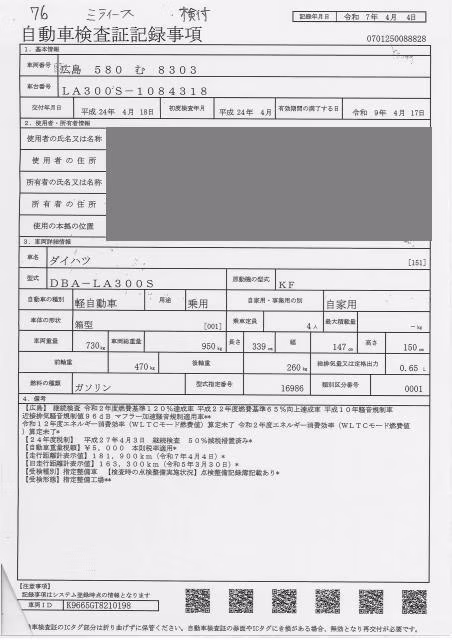 76 ミライース ・検付
記録年月日 令和 7年 4月 4日
自動車検査証記録事項
0701250088828
1. 基本情報
車両番号 広島 580 む 8303
車台番号 LA300S-1084318
交付年月日 平成 24年 4月 18日 初度検査年月 平成 24年 4月 有効期間の満了する日 令和 9年 4月 17日
2. 使用者・所有者情報
使用者の氏名又は名称
使用者の住所
所有者の氏名又は名称
所有者の住所
使用の本拠の位置
3. 車両詳細情報
車名 ダイハツ [151]
型式 DBA-LA300S 原動機の型式 KF
自動車の種別 軽自動車 用途 乗用 自家用・事業用の別 自家用
車体の形状 箱型 [001] 乗車定員 4人 最大積載量 -kg
車両重量 730kg 車両総重量 950kg 長さ 339cm 幅 147cm 高さ 150cm
前軸重 470kg 後軸重 260kg 総排気量又は定格出力 0.65 L
燃料の種類 ガソリン 型式指定番号 16986 類別区分番号 0001
4. 備考
【広島】 継続検査 令和2年度燃費基準120%達成車 平成22年度燃費基準65%向上達成車 平成10年騒音規制車
近接排気騒音規制値96dB マフラー加速騒音規制適用車**
令和12年度エネルギー消費効率(WLTCモード燃費値)算定未了 令和2年度エネルギー消費効率(WLTCモード燃費値
)算定未了*
【24年度税制】 平成27年4月3日 継続検査 50%減税措置済み*
【自動車重量税額】¥5,000 本則税率適用*
【走行距離計表示値】181,900km(令和7年4月4日)*
【旧走行距離計表示値】163,300km(令和5年3月30日)*
【受検種別】指定整備車 【検査時の点検整備実施状況】点検整備記録簿記載あり*
【受検形態】指定整備工場**
【注意事項】
記録事項はシステム登録時点の情報となります
車両ID K9665GT8210198
自動車検査証のICタグ部分は折り曲げずに保管ください。自動車検査証の券面やICタグにき損がある場合、無効となり再交付が必要です。